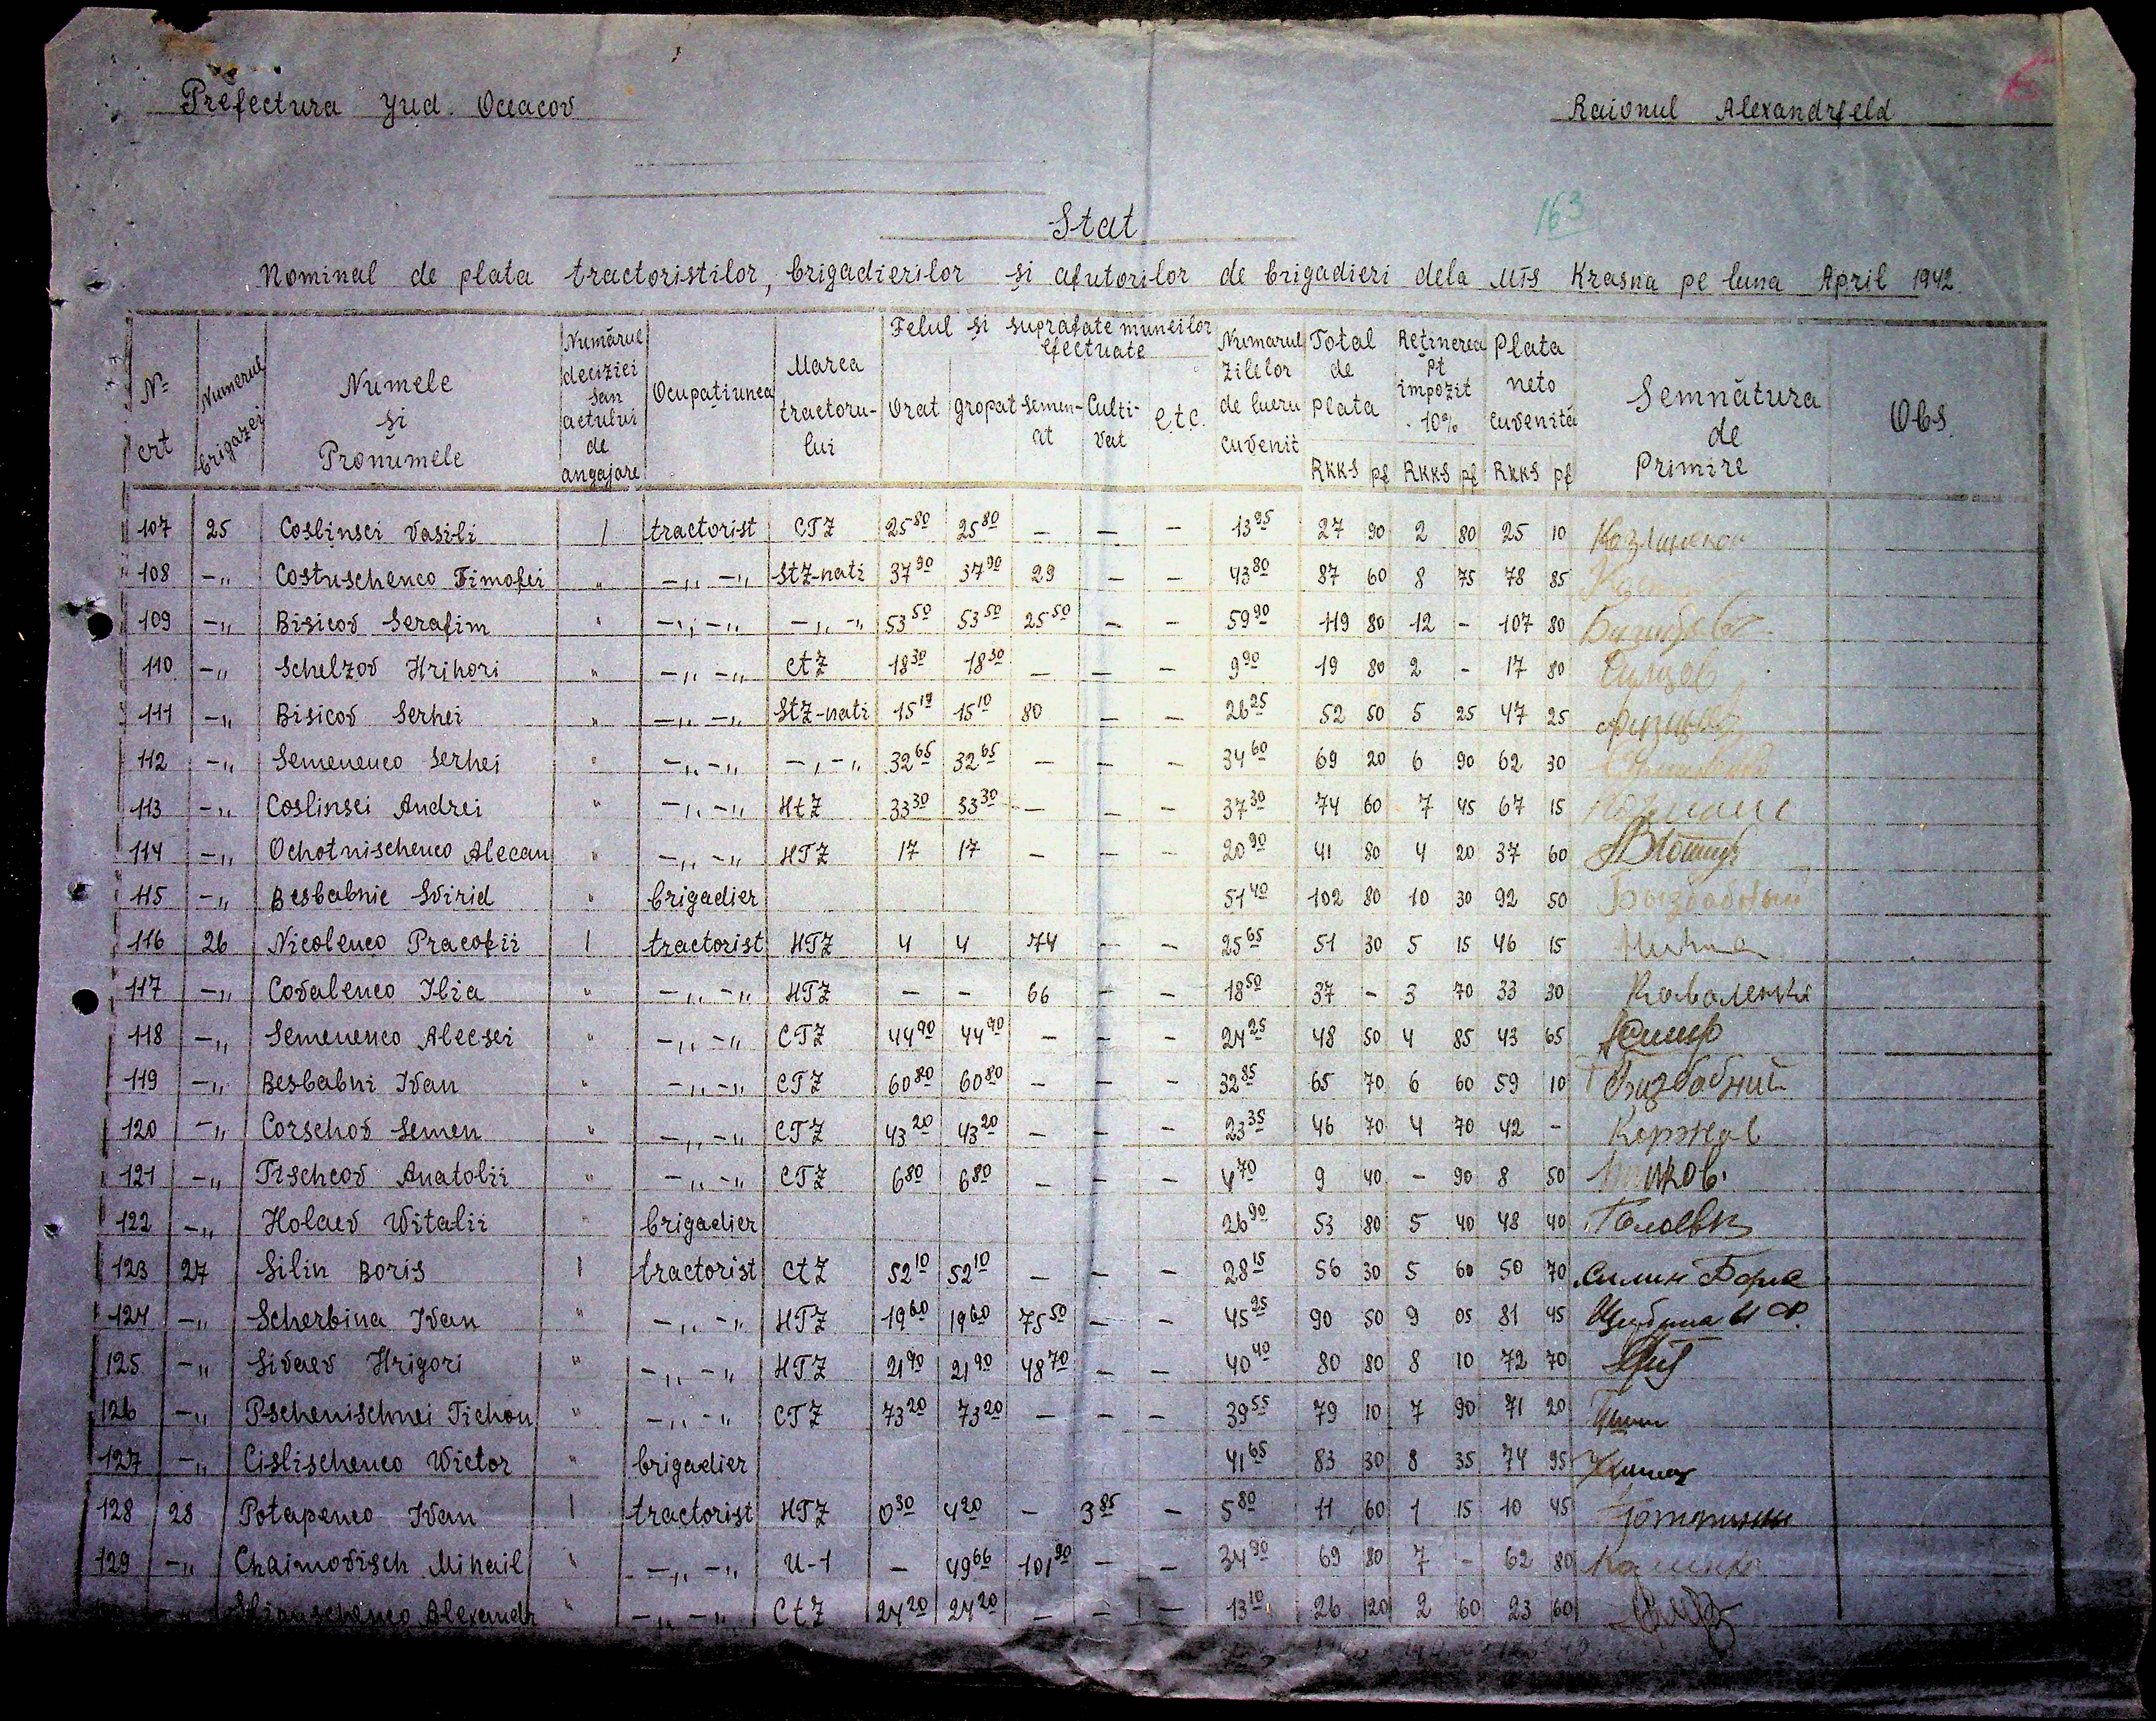 Prefectura Jud. Oceacov
Raionul Alexandrfeld
163
Stat
Nominal de plata tractoristilor, brigadierilor și ajutorilor de brigadieri dela MTS Krasna pe luna April 1942.
№ crt | Numerul brigazei | Numele și Pronumele | Numărul deciziei sau actului de angajare | Ocupațiunea | Marea tractorului | Felul și suprafate muncilor efectuate: Orat | gropat | semenat | Culti-vat | etc. | Numarul zilelor de lucru cuvenit | Total de plata RKKS pf | Reținerea pt impozit 10% RKKS pf | Plata neto cuvenită RKKS pf | Semnătura de Primire | Obs.
107 25 Coslinsci Vasili 1 tractorist CTZ 25 80 25 80 — — — 13 95 27 90 2 80 25 10
108 -„ Costuschenco Timofei „ -„ -„ StZ-nati 37 90 37 90 29 — — 43 80 87 60 8 75 78 85
109 -„ Bisicov Serafim „ -„ -„ -„ -„ 53 50 53 50 25 50 — — 59 90 119 80 12 - 107 80
110 -„ Schelzov Hrihori „ -„ -„ CtZ 18 30 18 30 — — — 9 90 19 80 2 - 17 80
111 -„ Bisicov Serhei „ -„ -„ StZ-nati 15 10 15 10 80 — — 26 25 52 50 5 25 47 25
112 -„ Semenenco Serhei „ -„ -„ -„ -„ 32 65 32 65 — — — 34 60 69 20 6 90 62 30
113 -„ Coslinsei Andrei „ -„ -„ HtZ 33 30 33 30 — — — 37 30 74 60 7 45 67 15
114 -„ Ochotnischenco Alecan „ -„ -„ HTZ 17 17 — — — 20 90 41 80 4 20 37 60
115 -„ Besbabnie Svirid „ brigadier 51 40 102 80 10 30 92 50
116 26 Nicolenco Pracofii 1 tractorist HTZ 4 4 74 — — 25 65 51 30 5 15 46 15
117 -„ Covalenco Ilia „ -„ -„ HTZ — — 66 — — 18 50 37 - 3 70 33 30
118 -„ Semenenco Alecsei „ -„ -„ CTZ 44 90 44 90 — — — 24 25 48 50 4 85 43 65
119 -„ Besbabni Ivan „ -„ -„ CTZ 60 80 60 80 — — — 32 85 65 70 6 60 59 10 Бизбабний
120 -„ Corschov Semen „ -„ -„ CTZ 43 20 43 20 — — — 23 35 46 70 4 70 42 - Коржов
121 -„ Tischcov Anatolii „ -„ -„ CTZ 6 80 6 80 — — — 4 70 9 40 - 90 8 50
122 -„ Holaev Witalii „ brigadier 26 90 53 80 5 40 48 40
123 27 Silin Boris 1 tractorist CtZ 52 10 52 10 — — — 28 15 56 30 5 60 50 70 Силин
124 -„ Scherbina Ivan „ -„ -„ HTZ 19 60 19 60 75 50 — — 45 25 90 50 9 05 81 45
125 -„ Sivaev Hrigori „ -„ -„ HTZ 21 90 21 90 48 70 — — 40 40 80 80 8 10 72 70
126 -„ Pschenischnei Tichon „ -„ -„ CTZ 73 20 73 20 — — — 39 55 79 10 7 90 71 20
127 -„ Cislischenco Wictor „ brigadier 41 65 83 30 8 35 74 95
128 28 Potapenco Ivan 1 tractorist HTZ 0 30 4 20 — 3 85 — 5 80 11 60 1 15 10 45
129 -„ Chaimovisch Mihail „ -„ -„ U-1 — 49 66 101 90 — — 34 90 69 80 7 - 62 80
-„ Alexandr „ -„ -„ CtZ 24 20 24 20 — — — 13 10 26 20 2 60 23 60